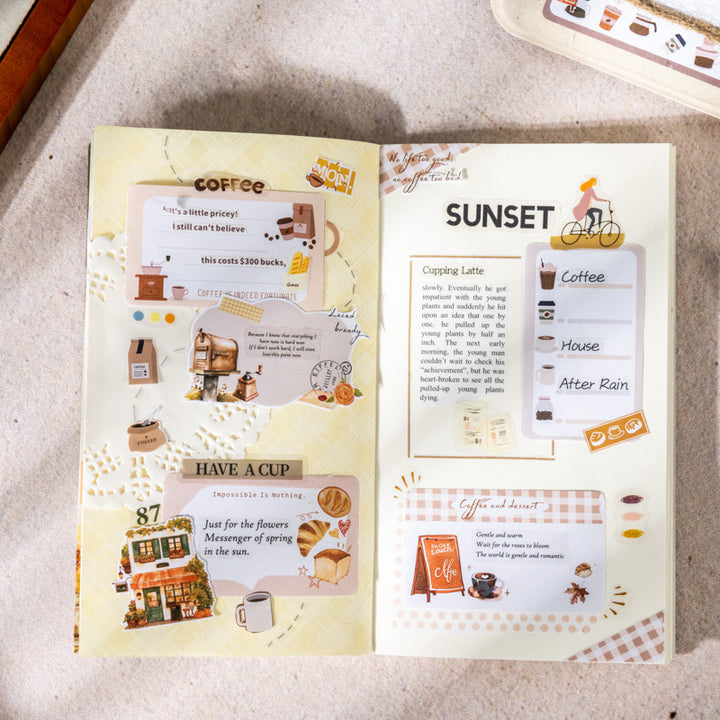 COFFEE
MOIN
It's a little pricey!
I still can't believe
this costs $300 bucks,
COFFEE IS INDEED FORTUNATE
Laced
brandy
Because I know that everything I
have now is hard won
If I don't work hard, I will even
lose this point now
COFFEE
HAVE A CUP
Impossible Is Nothing.
87
Just for the flowers
Messenger of spring
in the sun.
No life too good,
no coffee too bad.
SUNSET
Cupping Latte
slowly. Eventually he got
impatient with the young
plants and suddenly he hit
upon an idea that one by
one, he pulled up the
young plants by half an
inch. The next early
morning, the young man
couldn't wait to check his
"achievement", but he was
heart-broken to see all the
pulled-up young plants
dying.
Coffee
House
After Rain
Coffee and dessert
Gentle and warm
Wait for the roses to bloom
The world is gentle and romantic